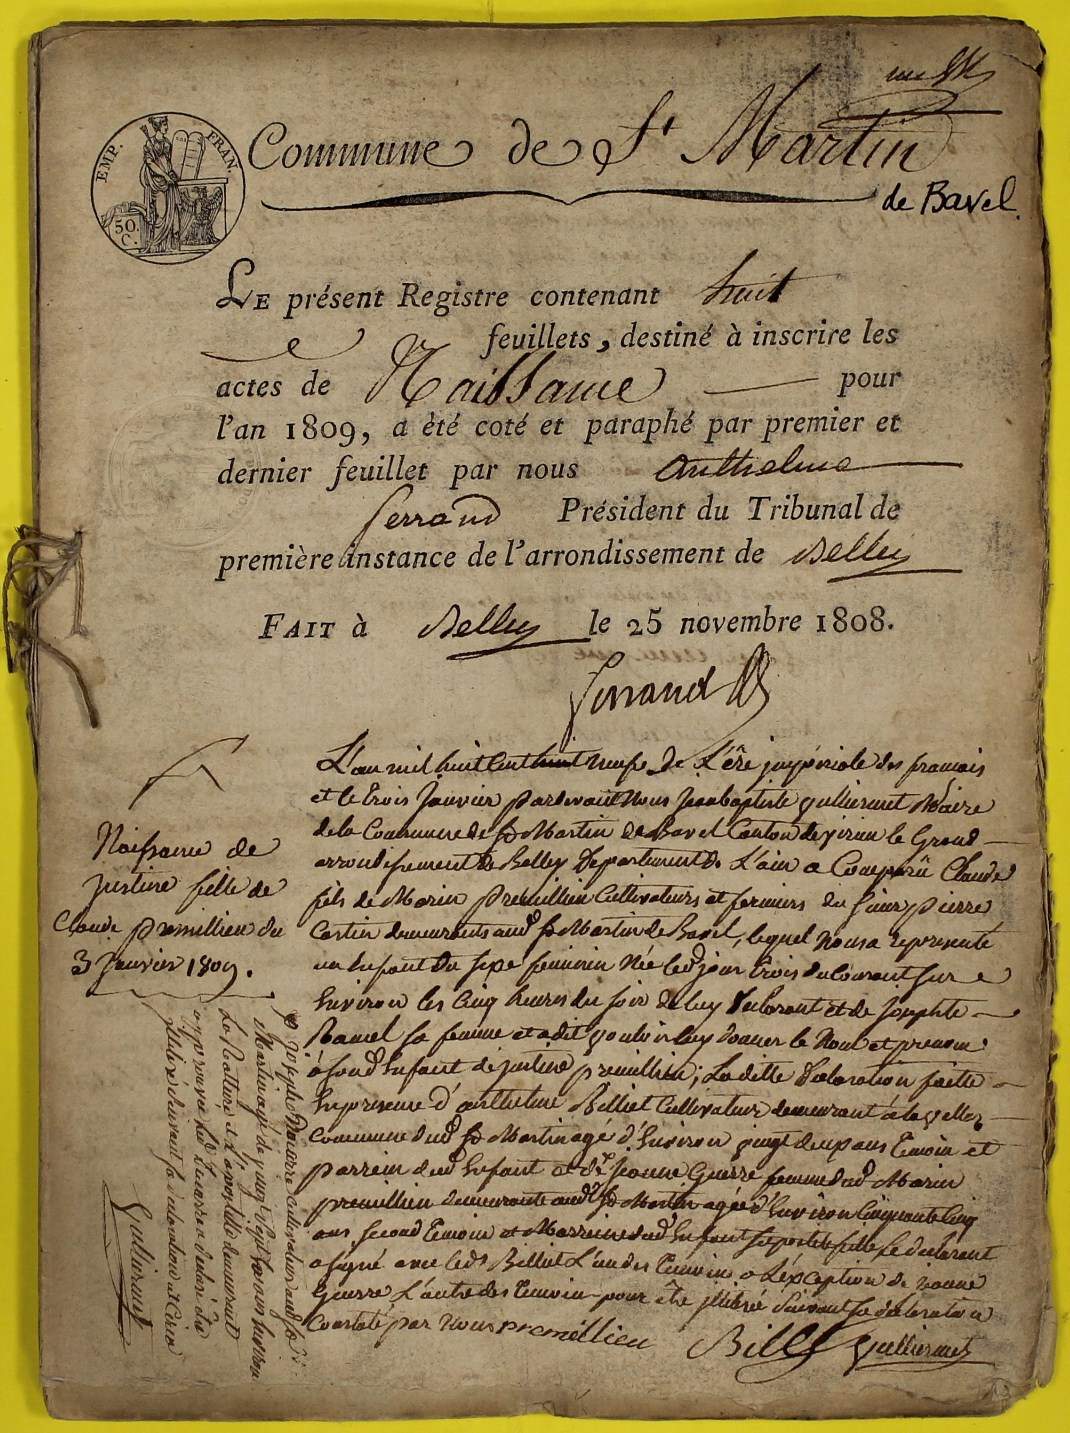 un
EMP. FRAN.
50.
C.
Commune de St Martin
de Bavel.
LE présent Registre contenant huit
feuillets, destiné à inscrire les
actes de Naissance pour
l'an 1809, a été coté et paraphé par premier et
dernier feuillet par nous Anthelme
ferrand Président du Tribunal de
première instance de l'arrondissement de Belley
FAIT à Belley le 25 novembre 1808.
ferrand
Naissance de
justine fille de
Claude premillieu du
3 Janvier 1809.
L'an mil huit cent huit neuf de L'ére jmpériale des français
et le trois Janvier pardevant Nous Jeanbaptiste gulliermet Maire
de la Commune de St Martin de Bavel Canton de virieu le Grand
arrondissement de Belley Departement de L'ain a Comparü Claude
fils de Marin premillieu Cultivateurs et fermiers du sieur pierre
Cartin demeurants aud St Martin de Bavel, lequel nous a representé
un Enfant du sexe feminin Née led jour trois du Courant sur
Environ les Cinq heures du soir de luy declarant et de Josephte
Ramel sa femme et a dit vouloir luy donner le Nom et prenom
à sond Enfant de justine premillieu; La ditte declaration faitte
En presence d'anthelme Billiet Cultivateur demeurant à
Commune dud St Martin agé d'Environ vingt deux ans temoin et
parrein dud Enfant et de Jeanne Guerre femme dud Marin
premillieu demeurante aud St Martin agée d'Environ Cinquante Cinq
ans second temoin et Marreine dud Enfant le declarant
a signé avec led Billiet L'un des temoin a L'exception de jeanne
Guerre L'autre des temoin pour être suivant sa declaration
Constaté par Nous premillieu Billiet gulliermet
joseph Guerre Cultivateur aud St
Martin agé de vingt sept ans environ
La Rature et L'apostille demeurant
approuvée led Guerre a declaré
suivant sa declaration
Gulliermet